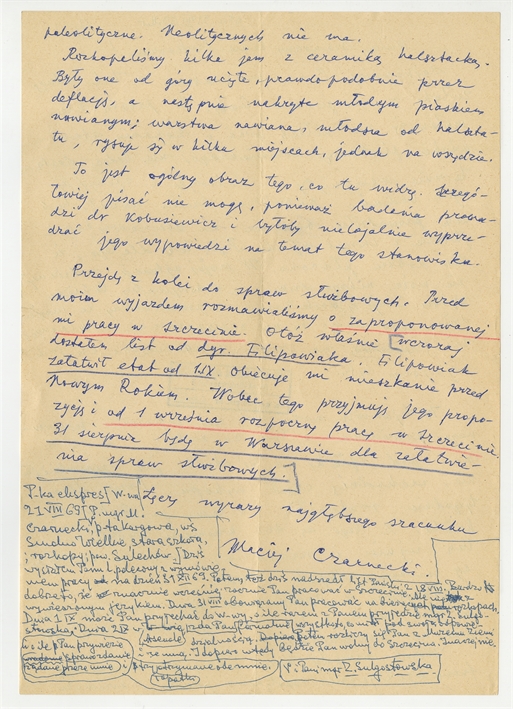 paleolityczne. Neolitycznych nie ma.
Rozkopaliśmy kilka jam z ceramiką halsztacką.
Były one od góry ucięte, prawdopodobnie przez
deflację, a następnie nakryte młodym piaskiem
nawianym; warstwa nawiana, młodsza od halszta-
tu, rysuje się w kilku miejscach, jednak nie wszędzie.
To jest ogólny obraz tego, co tu widzę. Szczegó-
łowiej pisać nie mogę, ponieważ badania prowa-
dzi dr Kobusiewicz i byłoby nielojalnie wyprze-
dzać jego wypowiedzi na temat tego stanowiska.
Przejdę z kolei do spraw służbowych. Przed
moim wyjazdem rozmawialiśmy o zaproponowanej
mi pracy w Szczecinie. Otóż właśnie [wczoraj
dostałem list od dyr. Filipowiaka. Filipowiak
załatwił etat od 1.IX. Obiecuje mi mieszkanie przed
Nowym Rokiem. Wobec tego przyjmuję jego propo-
zycję i od 1 września rozpocznę pracę w Szczecinie.
31 sierpnia będę w Warszawie dla załatwie-
nia spraw służbowych.]
Łączę wyrazy najgłębszego szacunku
Maciej Czarnecki.
P-ka ekspres W-wa
21 VIII 69. P. mgr M.
Czarnecki, p-ta Kargowa, wś
Smolno Wielkie, stara szkoła,
rozkopy, pow. Sulechów. Dziś
wysłałem Panu l. polecony z wymówie-
niem pracy na dzień 31 XII 69. Potem też dziś nadszedł list Pański z 18 VIII. Bardzo
dobrze, że wcześniej rozpocznie Pan pracować w Szczecinie.
Dnia 31 VIII obowiązany Pan pracować
Dnia 1 IX może Pan przyjechać do W-wy
Dopiero potem rozliczy się Pan z Muzeum Ziemi
i ze mną. I dopiero wtedy będzie Pan wolny do Szczecina. Inaczej nie.
i o ile Pan przywiezie
sprawozdanie
żądane przeze mnie
i otrzymane ode mnie
P. Pani mgr Z. Sulgostowska